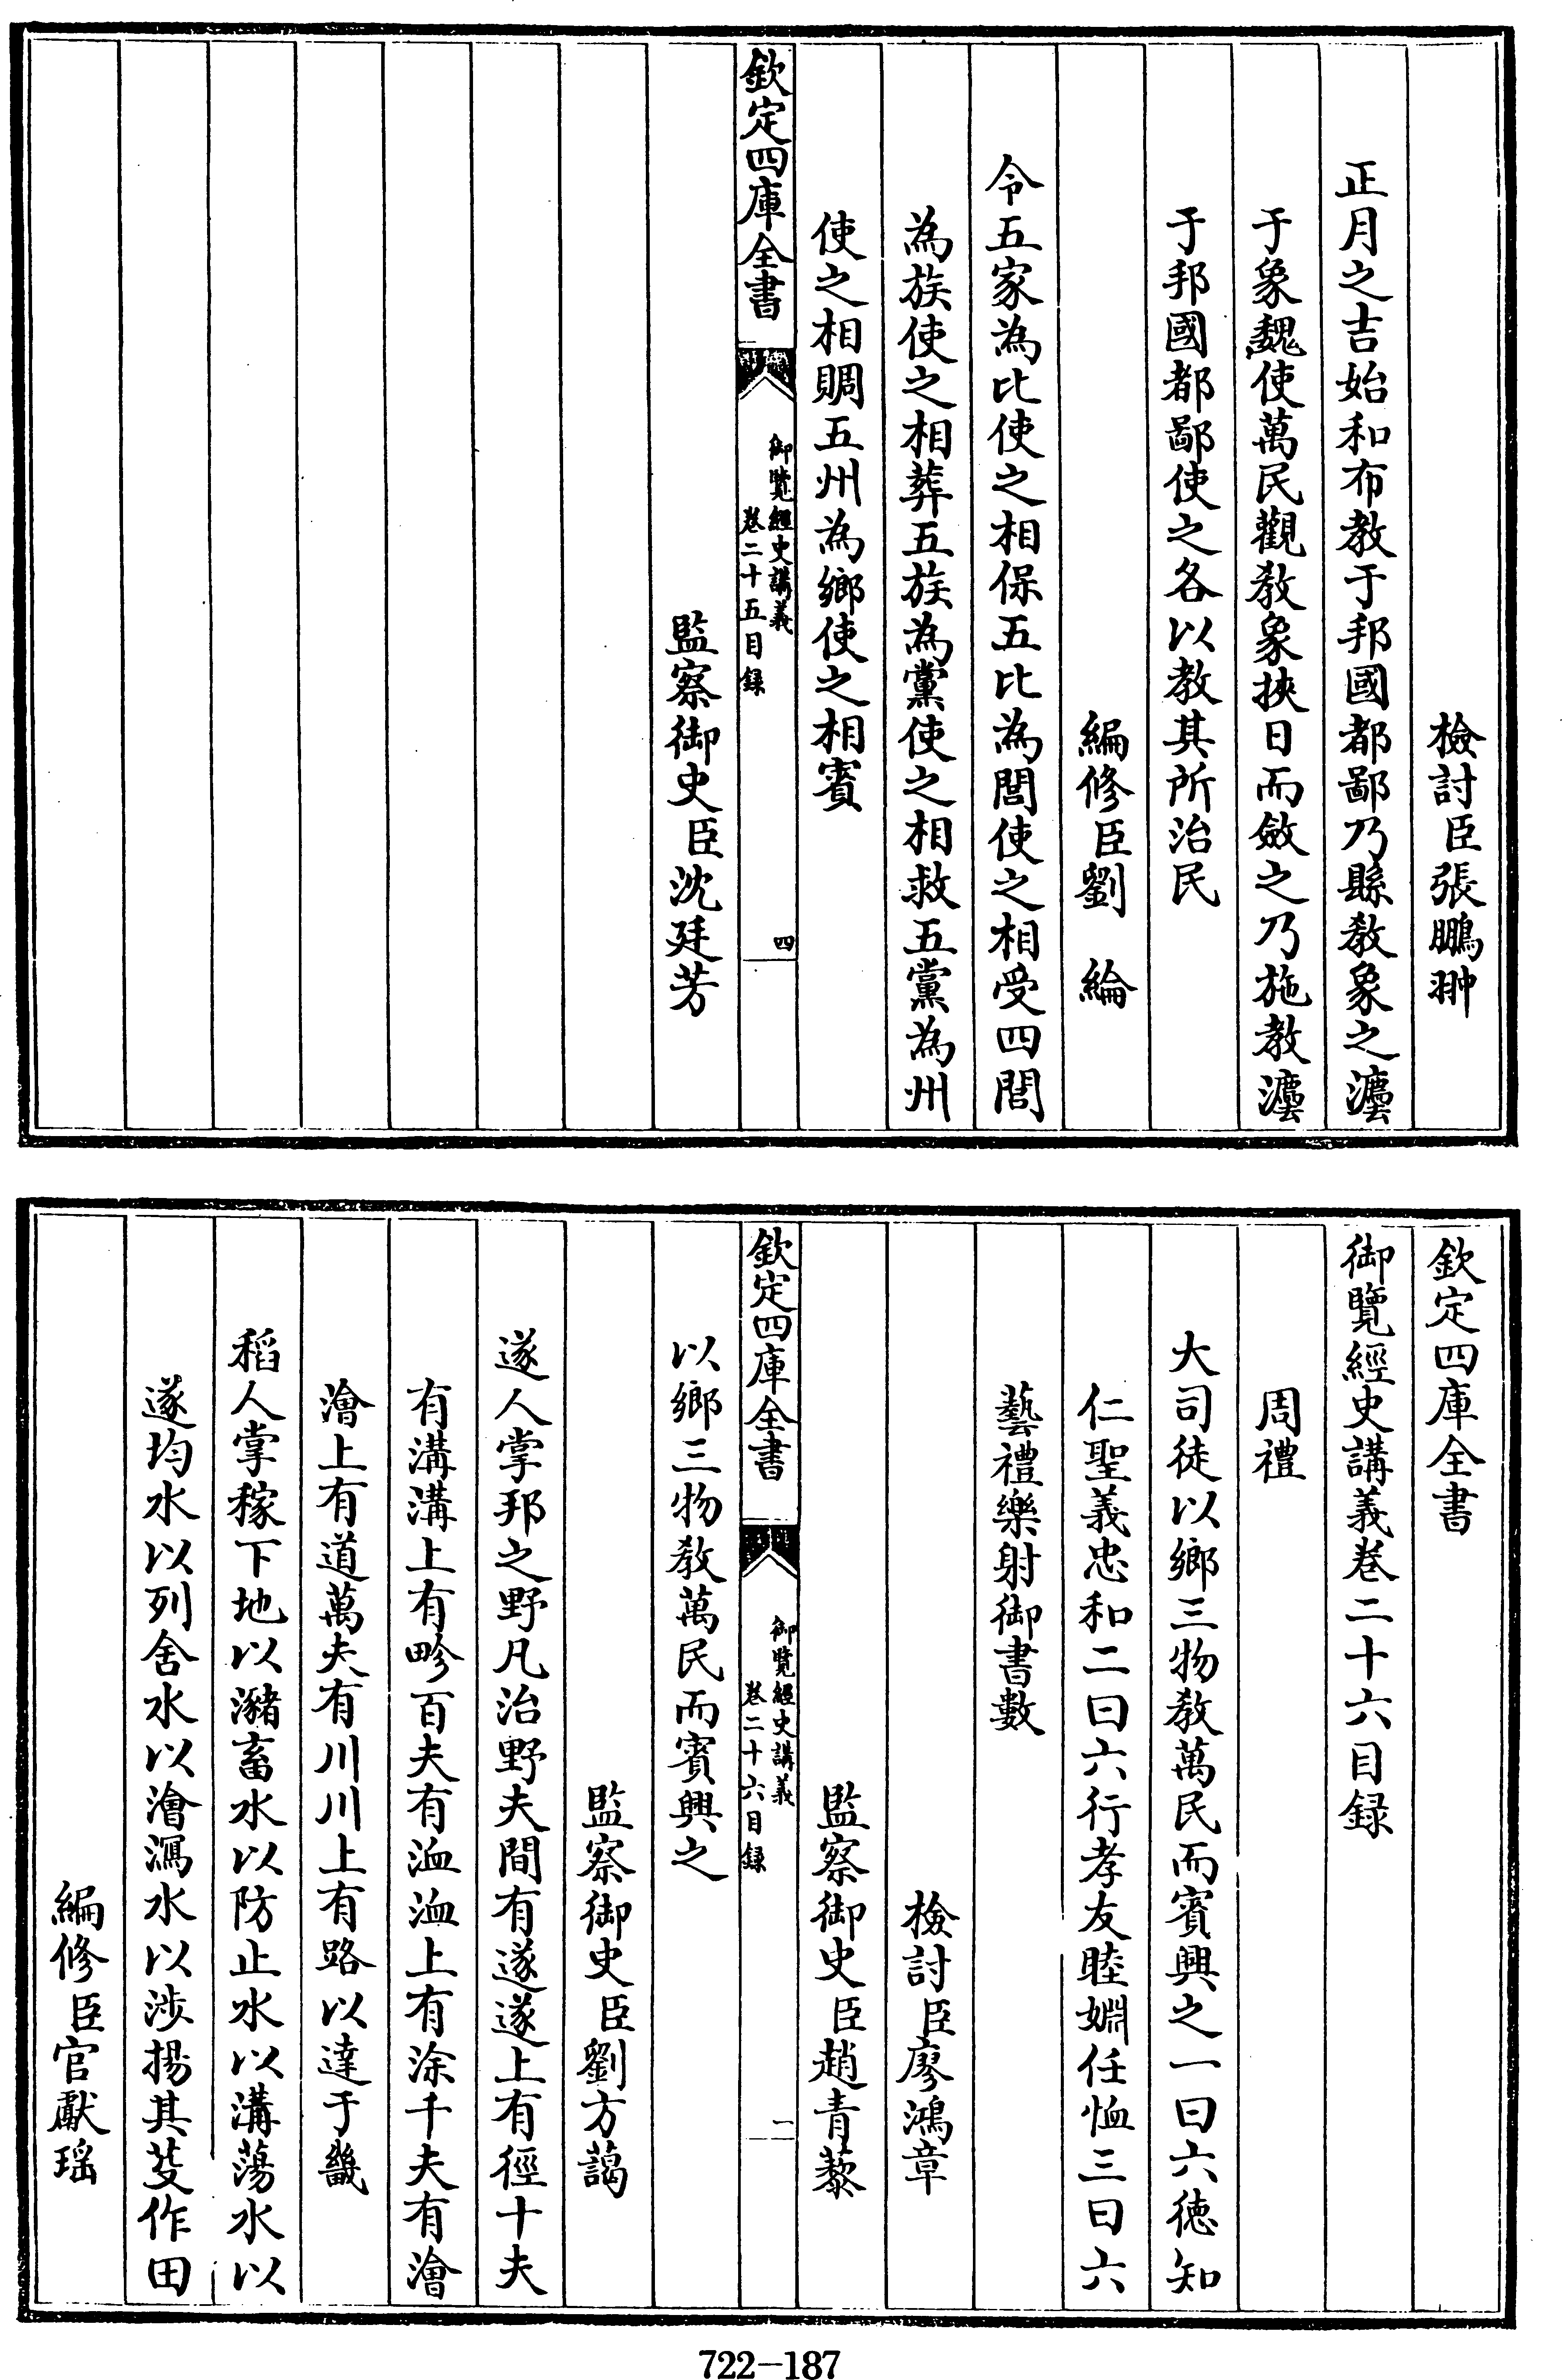 檢討臣張鵬翀
正月之吉始和布教于邦國都鄙乃縣教象之灋
于象魏使萬民觀教象挾日而斂之乃施教灋
于邦國都鄙使之各以教其所治民
編修臣劉 綸
令五家為比使之相保五比為閭使之相受四閭
為族使之相葬五族為黨使之相救五黨為州
使之相賙五州為鄉使之相賓
欽定四庫全書
御覽經史講義
卷二十五目録
四
監察御史臣沈廷芳
欽定四庫全書
御覽經史講義卷二十六目録
周禮
大司徒以鄉三物教萬民而賓興之一曰六德知
仁聖義忠和二曰六行孝友睦婣任恤三曰六
藝禮樂射御書數
檢討臣廖鴻章
監察御史臣趙青藜
欽定四庫全書
御覽經史講義
卷二十六目録
一
以鄉三物教萬民而賓興之
監察御史臣劉方藹
遂人掌邦之野凡治野夫間有遂遂上有徑十夫
有溝溝上有畛百夫有洫洫上有涂千夫有澮
澮上有道萬夫有川川上有路以達于畿
稻人掌稼下地以瀦畜水以防止水以溝蕩水以
遂均水以列舍水以澮瀉水以涉揚其芟作田
編修臣官獻瑤
722-187